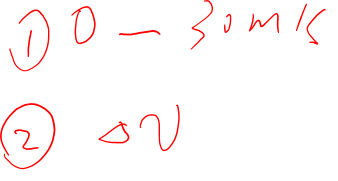 ① 0 — 30 m/s
② △V